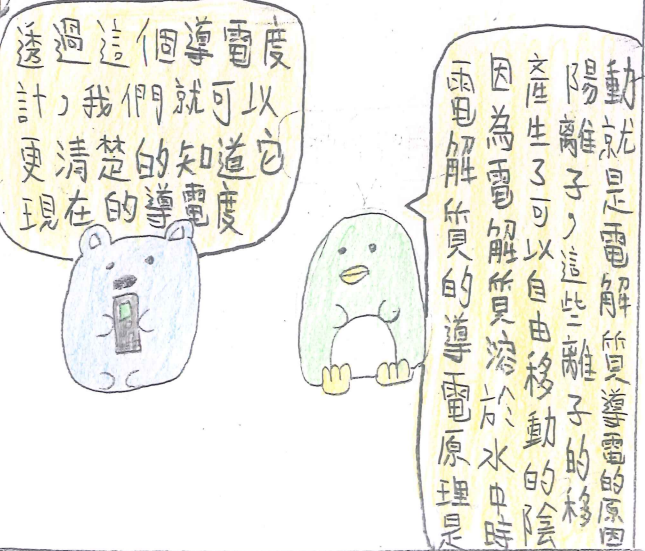 透過這個導電度
計,我們就可以
更清楚的知道它
現在的導電度
電解質的導電原理是
因為電解質溶於水中時
產生了可以自由移動的陰
陽離子,這些離子的移
動就是電解質導電的原因